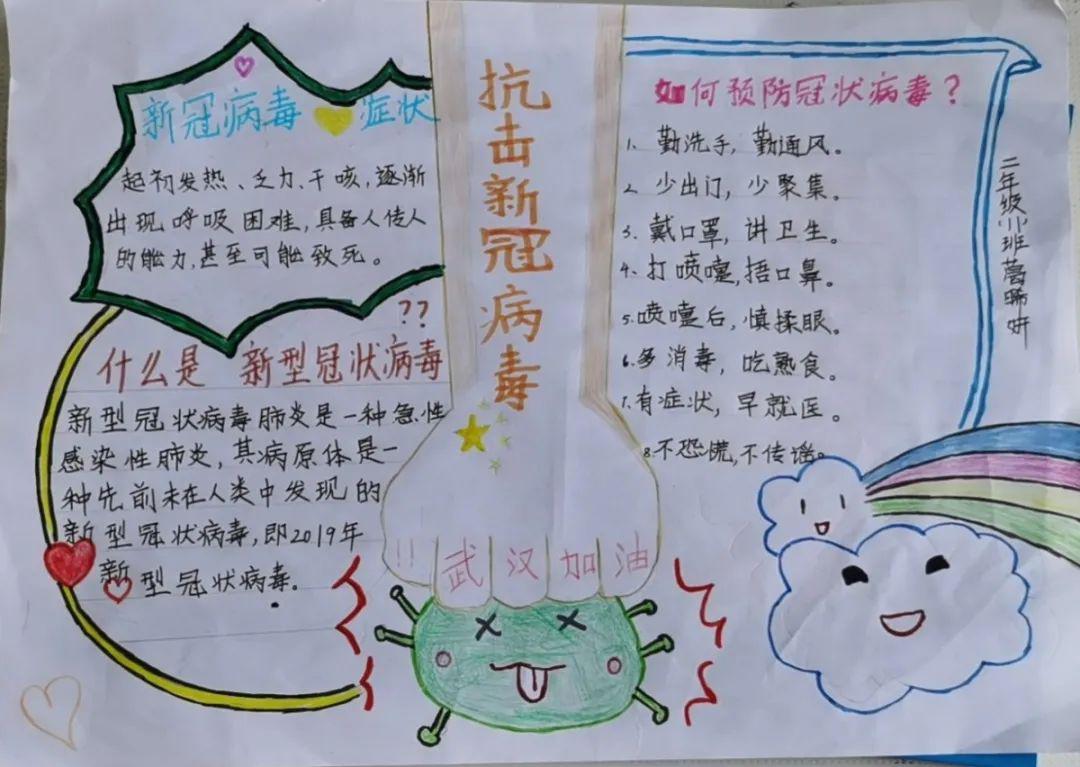 新冠病毒 症状
起初发热、乏力、干咳,逐渐
出现呼吸困难,具备人传人
的能力,甚至可能致死。
??
什么是 新型冠状病毒
新型冠状病毒肺炎是一种急性
感染性肺炎,其病原体是一
种先前未在人类中发现的
新型冠状病毒,即2019年
新型冠状病毒。
抗击新冠病毒
!! 武汉加油
如何预防冠状病毒?
1. 勤洗手,勤通风。
2. 少出门,少聚集。
3. 戴口罩,讲卫生。
4. 打喷嚏,捂口鼻。
5. 喷嚏后,慎揉眼。
6. 多消毒,吃熟食。
7. 有症状,早就医。
8. 不恐慌,不传谣。
二年级